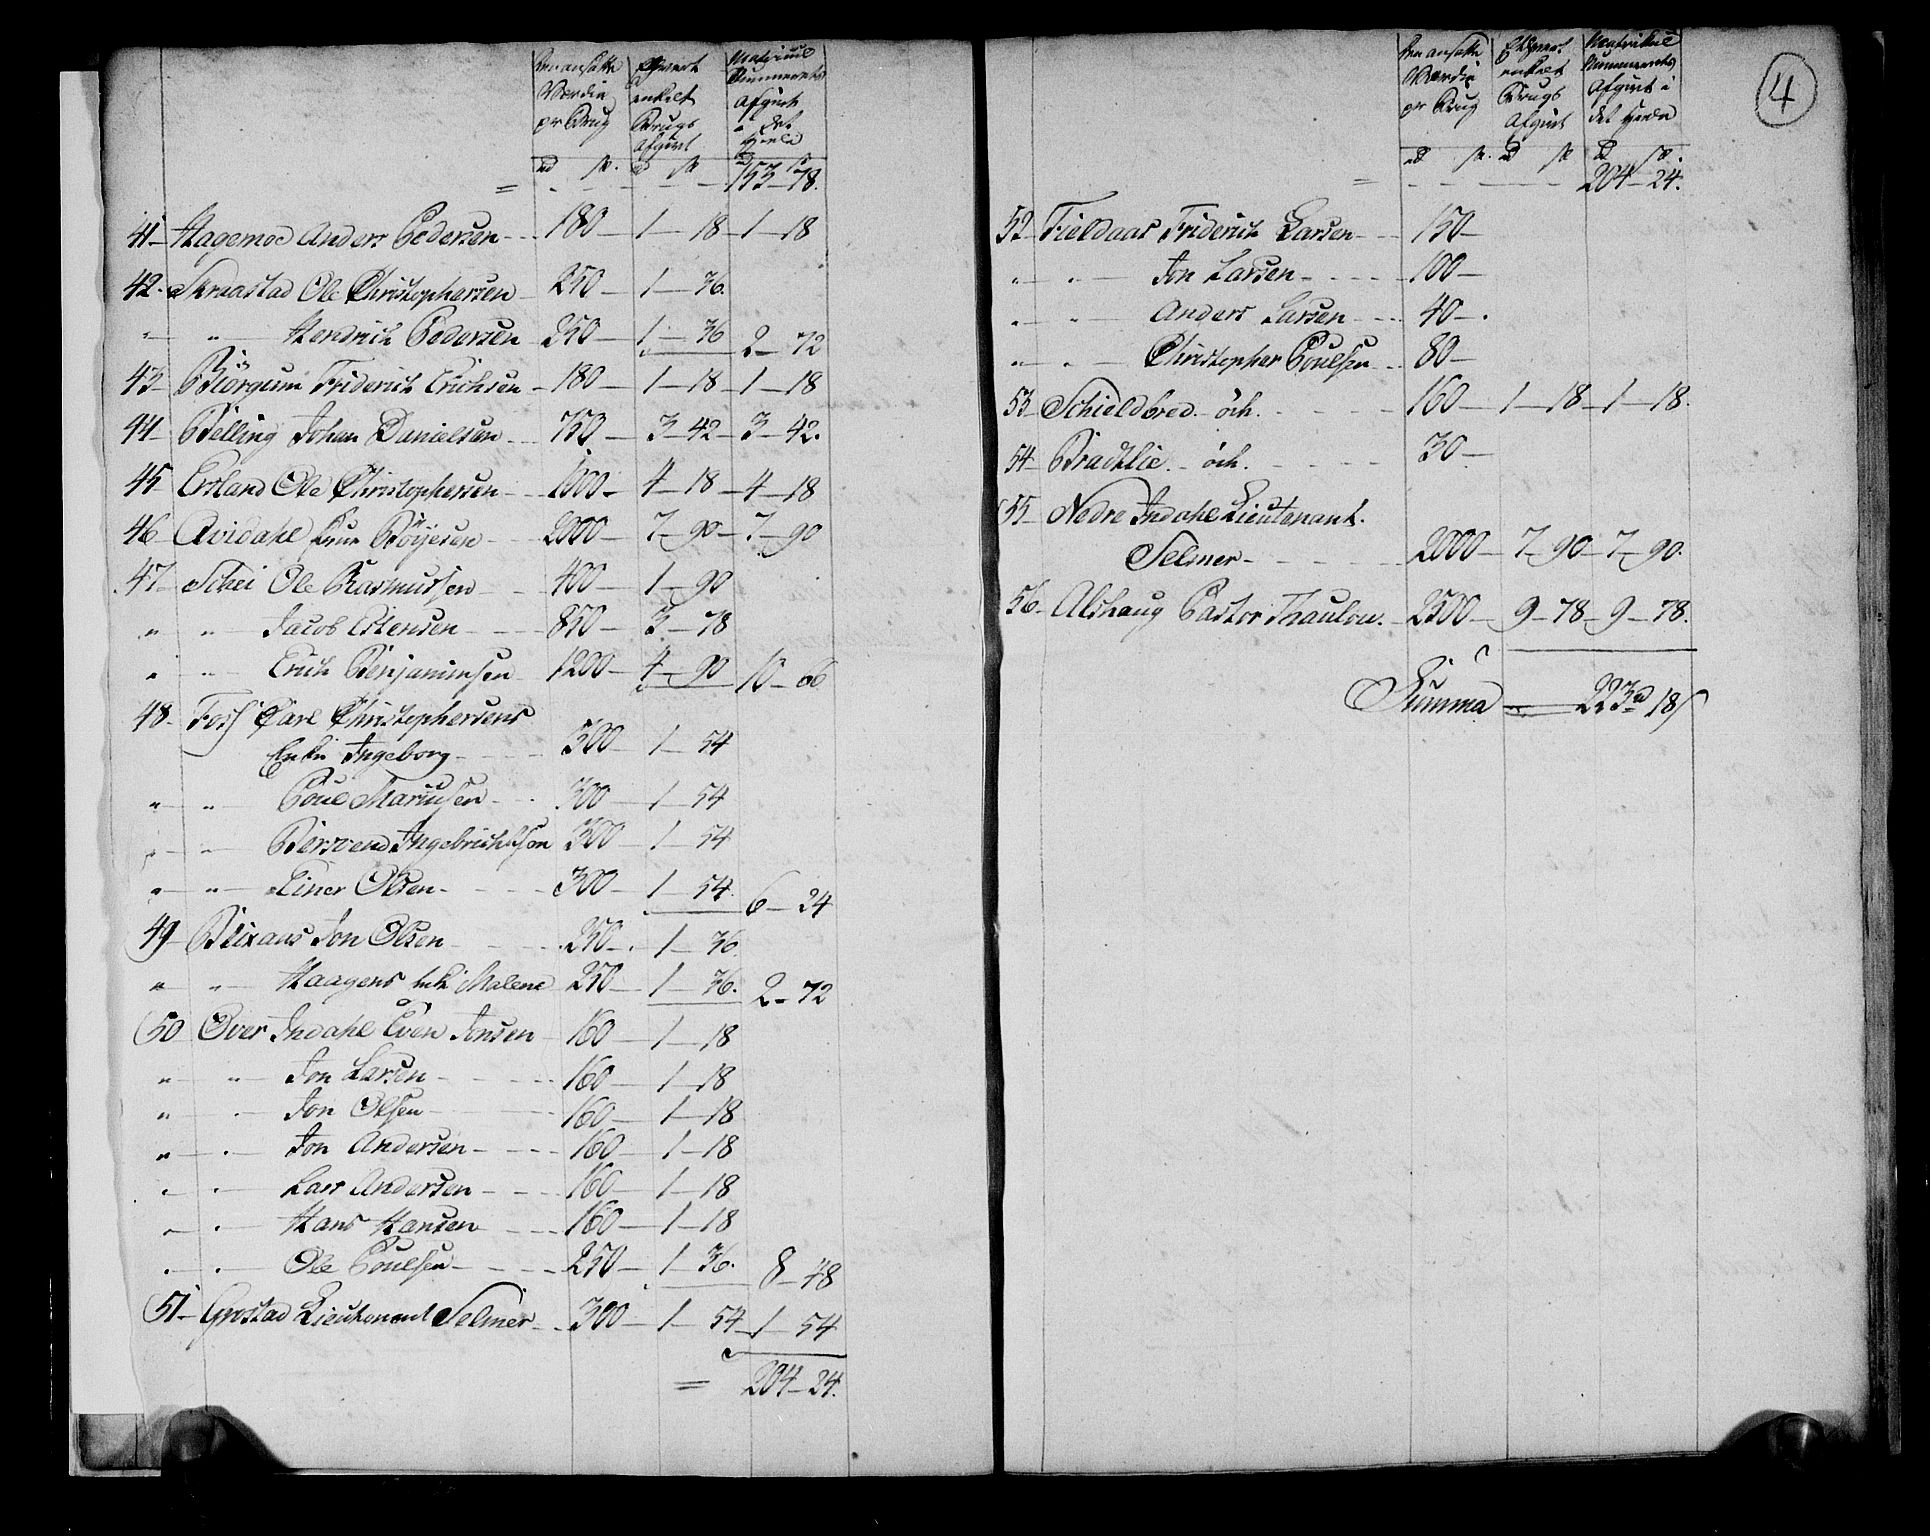 Den ansatte Værdie pr Brug
Ethvert enkelt Brugs Afgivt
Matricul Nummerets Afgivt i det Heele
rd s. rd s rd s
= 153 - 78.
41 - Hagemoe Anders Pedersen - 180 - 1 - 18 - 1 - 18
42 - Skraastad Ole Christophersen - 250 - 1 - 36.
" " Hendrich Pedersen 250 - 1 - 36 2 - 72
43 - Biörgum Friderich Erichsen - 180 - 1 - 18 - 1 - 18
44 - Belling Johan Danielsen - 750 - 3 - 42 - 3 - 42.
45 - Østland Ole Christophersen - 1000 - 4 - 18 - 4 - 18
46 - Qvidahl Böyesen - 2000 - 7 - 90 - 7 - 90
47 - Schei Ole Rasmussen - 400 - 1 - 90
" " Jacob Estensen - 850 - 3 - 78
" " Erich Benjaminsen - 1200 - 4 - 90 10 - 66
48 - Foss Carl Christophersens
Enke Ingeborg - 300 - 1 - 54
" " Poul Mariusen - 300 - 1 - 54
" " Bersvend Ingebrichtsen 300 - 1 - 54
" " Einer Olsen - 300 - 1 - 54. 6 - 24
49 - Blixaas Jon Olsen - 250 - 1 - 36.
" " Haagens Enke Malene 250 - 1 - 36. 2 - 72
50 Over Indahl Even Jonsen 160 - 1 - 18
" " Jon Larsen - 160 - 1 - 18
" " Jon Olsen - 160 - 1 - 18
" " Jon Andersen - 160 - 1 - 18
" " Lars Andersen - 160 - 1 - 18
" " Hans Hansen - 160 - 1 - 18
" " Ole Poulsen - 250 - 1 - 36. 8 - 48
51 - Grostad Lieutenant Selmer - 300 - 1 - 54 - 1 - 54
= 204 - 24.
4
Den ansatte Værdie pr Brug
Ethvert enkelt Brugs Afgivt
Matricul Nummerets Afgivt i det Heele
rd s. rd s rd s.
= 204 - 24.
52 - Fieldaas Friderich Larsen - 150 -
" " Jon Larsen - 100 -
" " Anders Larsen - 40 -
" " Christopher Poulsen - 80 -
53 - Schieldbred - öde. - 160 - 1 - 18 - 1 - 18.
54 - Bradtlie - öde. - 30 -
55 - Nedre Indahl Lieutenant
Selmer - 2000 - 7 - 90 - 7 - 90.
56 - Alshaug Pastor Thaulow. - 2500 - 9 - 78 - 9 - 78.
Summa = 223 rd 18 s